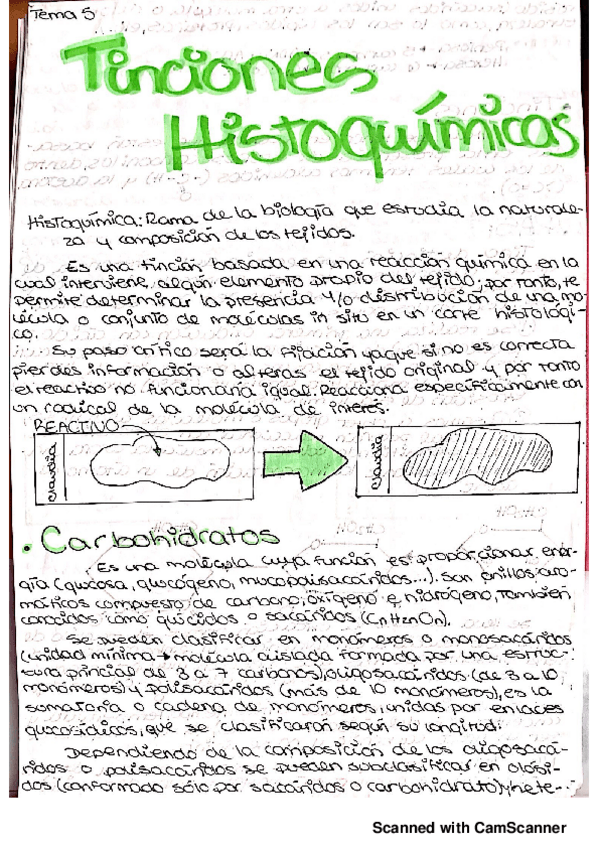 Tema 5
Tinciones
Histoquímicas
Histoquímica: Rama de la biología que estudia la naturale-
za y composición de los tejidos.
Es una tinción basada en una reacción química en la
cual interviene, algún elemento propio del tejido; por tanto, te
permite determinar la presencia y/o distribución de una mo-
lécula o conjunto de moléculas in situ en un corte histológi-
co.
Su paso crítico será la fijación ya que si no es correcta
pierdes información o alteras el tejido original y por tanto
el reactivo no funcionaría igual. Reacciona específicamente con
un radical de la molécula de interés.
REACTIVO
Claudia
Claudia
· Carbohidratos
Es una molécula cuya función es proporcionar ener-
gía (glucosa, glucógeno, mucopolisacáridos...). Son anillos aro-
máticos compuesto de carbono, oxígeno e hidrógeno, también
conocidos como glúcidos o sacáridos (CnH2nOn).
Se pueden clasificar en monómeros o monosacáridos
(unidad mínima → molécula aislada formada por una estruc-
tura princial de 3 a 7 carbonos), oligosacáridos (de 3 a 10
monómeros) y polisacáridos (más de 10 monómeros), es la
somatoria o cadena de monómeros, unidas por enlaces
glucosídicos, que se clasificarán según su longitud.
Dependiendo de la composición de los oligosacá-
ridos o polisacáridos se pueden subclasificar en olósi-
dos (conformado sólo por sacáridos o carbohidrato) y hete-
Scanned with CamScanner